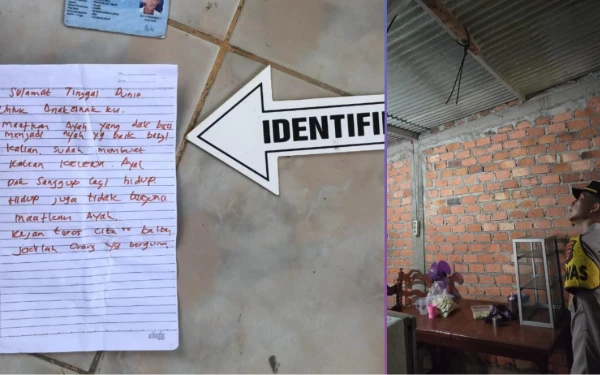 Selamat Tinggal Dunia
Untuk Anak anak ku.
Maafkan Ayah yang dak bisa
menjadi Ayah yg baik bagi
Kalian sudah membuat
Kalian kecewa Ayah
Dak sanggup lagi hidup.
Hidup juga tidak berguna
Maafkan Ayah.
Kejar terus cita" kalian
jadilah orang yg berguna
IDENTIFI